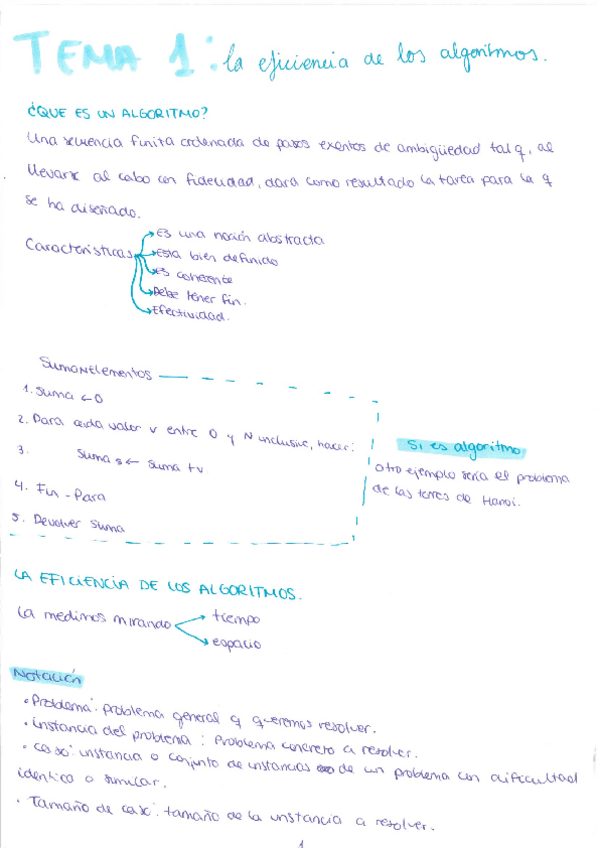 TEMA 1: la eficiencia de los algoritmos.
¿QUE ES UN ALGORITMO?
Una secuencia finita ordenada de pasos exentos de ambigüedad tal q, al
llevarse al cabo con fidelidad, dará como resultado la tarea para la q
se ha diseñado.
Características
Es una noción abstracta
Esta bien definido
Es coherente
Debe tener fin.
Efectividad.
SumaNElementos
1. Suma ← 0
2. Para cada valor v entre 0 y N inclusive, hacer:
3. Suma ← Suma + v
4. Fin - Para
5. Devolver Suma
Si es algoritmo
otro ejemplo sería el problema
de las torres de Hanoi.
LA EFICIENCIA DE LOS ALGORITMOS.
La medimos mirando
tiempo
espacio
Notación
• Problema: problema general q queremos resolver.
• instancia del problema: Problema concreto a resolver.
• caso: instancia o conjunto de instancias de un problema con dificultad
identica o similar.
• Tamaño de caso: tamaño de la instancia a resolver.
1